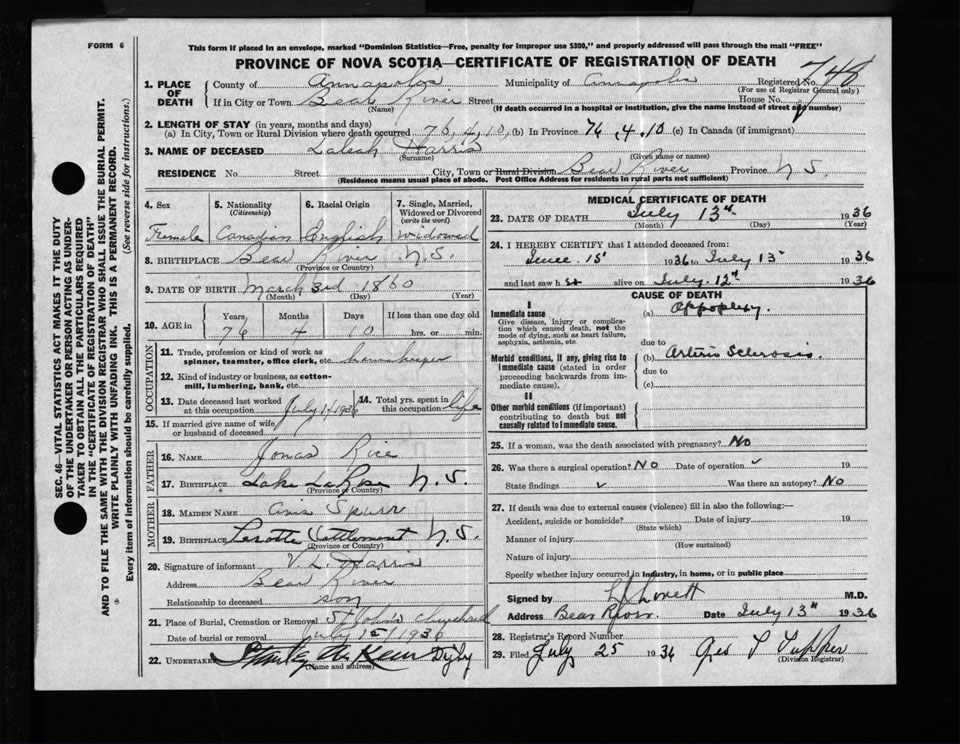 FORM 6
This form if placed in an envelope, marked "Dominion Statistics—Free, penalty for improper use $300," and properly addressed will pass through the mail "FREE"
PROVINCE OF NOVA SCOTIA—CERTIFICATE OF REGISTRATION OF DEATH
SEC. 46—VITAL STATISTICS ACT MAKES IT THE DUTY
OF THE UNDERTAKER OR PERSON ACTING AS UNDER-
TAKER TO OBTAIN ALL THE PARTICULARS REQUIRED
IN THE "CERTIFICATE OF REGISTRATION OF DEATH"
AND TO FILE THE SAME WITH THE DIVISION REGISTRAR WHO SHALL ISSUE THE BURIAL PERMIT.
WRITE PLAINLY WITH UNFADING INK. THIS IS A PERMANENT RECORD.
Every item of information should be carefully supplied. (See reverse side for instructions.)
1. PLACE OF DEATH County of Annapolis Municipality of Annapolis Registered No. 748
(For use of Registrar General only)
If in City or Town Bear River Street House No.
(Name) (If death occurred in a hospital or institution, give the name instead of street and number)
2. LENGTH OF STAY (in years, months and days)
(a) In City, Town or Rural Division where death occurred 76, 4, 10, (b) In Province 76. 4. 10 (c) In Canada (if immigrant)
3. NAME OF DECEASED Harris
(Surname) (Given name or names)
RESIDENCE No. Street City, Town or Rural Division Bear River Province N.S.
(Residence means usual place of abode. Post Office Address for residents in rural parts not sufficient)
4. Sex 5. Nationality (Citizenship) 6. Racial Origin 7. Single, Married, Widowed or Divorced (write the word)
Female Canadian English Widowed
8. BIRTHPLACE Bear River N.S.
(Province or Country)
9. DATE OF BIRTH March 3rd 1860
(Month) (Day) (Year)
10. AGE in Years Months Days If less than one day old
76 4 10 hrs. or min.
OCCUPATION
11. Trade, profession or kind of work as spinner, teamster, office clerk, etc. housekeeper
12. Kind of industry or business, as cotton-mill, lumbering, bank, etc.
13. Date deceased last worked at this occupation July 1/1936 14. Total yrs. spent in this occupation life
15. If married give name of wife or husband of deceased
FATHER
16. NAME Jonas Rice
17. BIRTHPLACE Lake LaRose N.S.
(Province or Country)
MOTHER
18. MAIDEN NAME Avis Spurr
19. BIRTHPLACE Settlement N.S.
(Province or Country)
20. Signature of informant V. L. Harris
Address Bear River
Relationship to deceased son
21. Place of Burial, Cremation or Removal St Johns Churchyard
Date of burial or removal July 15/1936
22. UNDERTAKER Stanley Digby
(Name and address)
MEDICAL CERTIFICATE OF DEATH
23. DATE OF DEATH July 13th 1936
(Month) (Day) (Year)
24. I HEREBY CERTIFY that I attended deceased from:
June 15 1936 to July 13 1936
and last saw h er alive on July 12th 1936
CAUSE OF DEATH
I
Immediate cause
Give disease, injury or complication which caused death, not the mode of dying, such as heart failure, asphyxia, asthenia, etc.
(a) Appoplexy.
due to
Morbid conditions, if any, giving rise to immediate cause (stated in order proceeding backwards from immediate cause).
(b) Arterio Sclerosis.
due to
(c)
II
Other morbid conditions (if important) contributing to death but not causally related to immediate cause.
25. If a woman, was the death associated with pregnancy? No
26. Was there a surgical operation? No Date of operation 19
State findings Was there an autopsy? No
27. If death was due to external causes (violence) fill in also the following:—
Accident, suicide or homicide? Date of injury 19
(State which)
Manner of injury
(How sustained)
Nature of injury
Specify whether injury occurred in industry, in home, or in public place
Signed by Lovett M.D.
Address Bear River. Date July 13th 1936
28. Registrar's Record Number
29. Filed July 25 1936 Tupper
(Division Registrar)